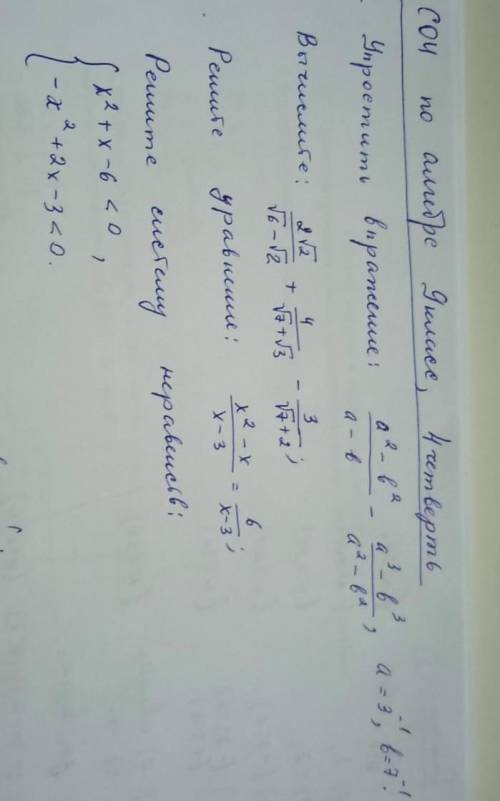 СОЧ по алгебре 9 класс, 4 четверть
Упростить выражение: \frac{a^2 - b^2}{a - b} - \frac{a^3 - b^3}{a^2 - b^2}, a = 3^{-1}, b = 7^{-1}.
Вычислите: \frac{2\sqrt{2}}{\sqrt{6} - \sqrt{2}} + \frac{4}{\sqrt{7} + \sqrt{3}} - \frac{3}{\sqrt{7} + 2};
Решите уравнение: \frac{x^2 - x}{x - 3} = \frac{6}{x - 3};
Решите систему неравенств:
x^2 + x - 6 < 0,
-x^2 + 2x - 3 < 0.